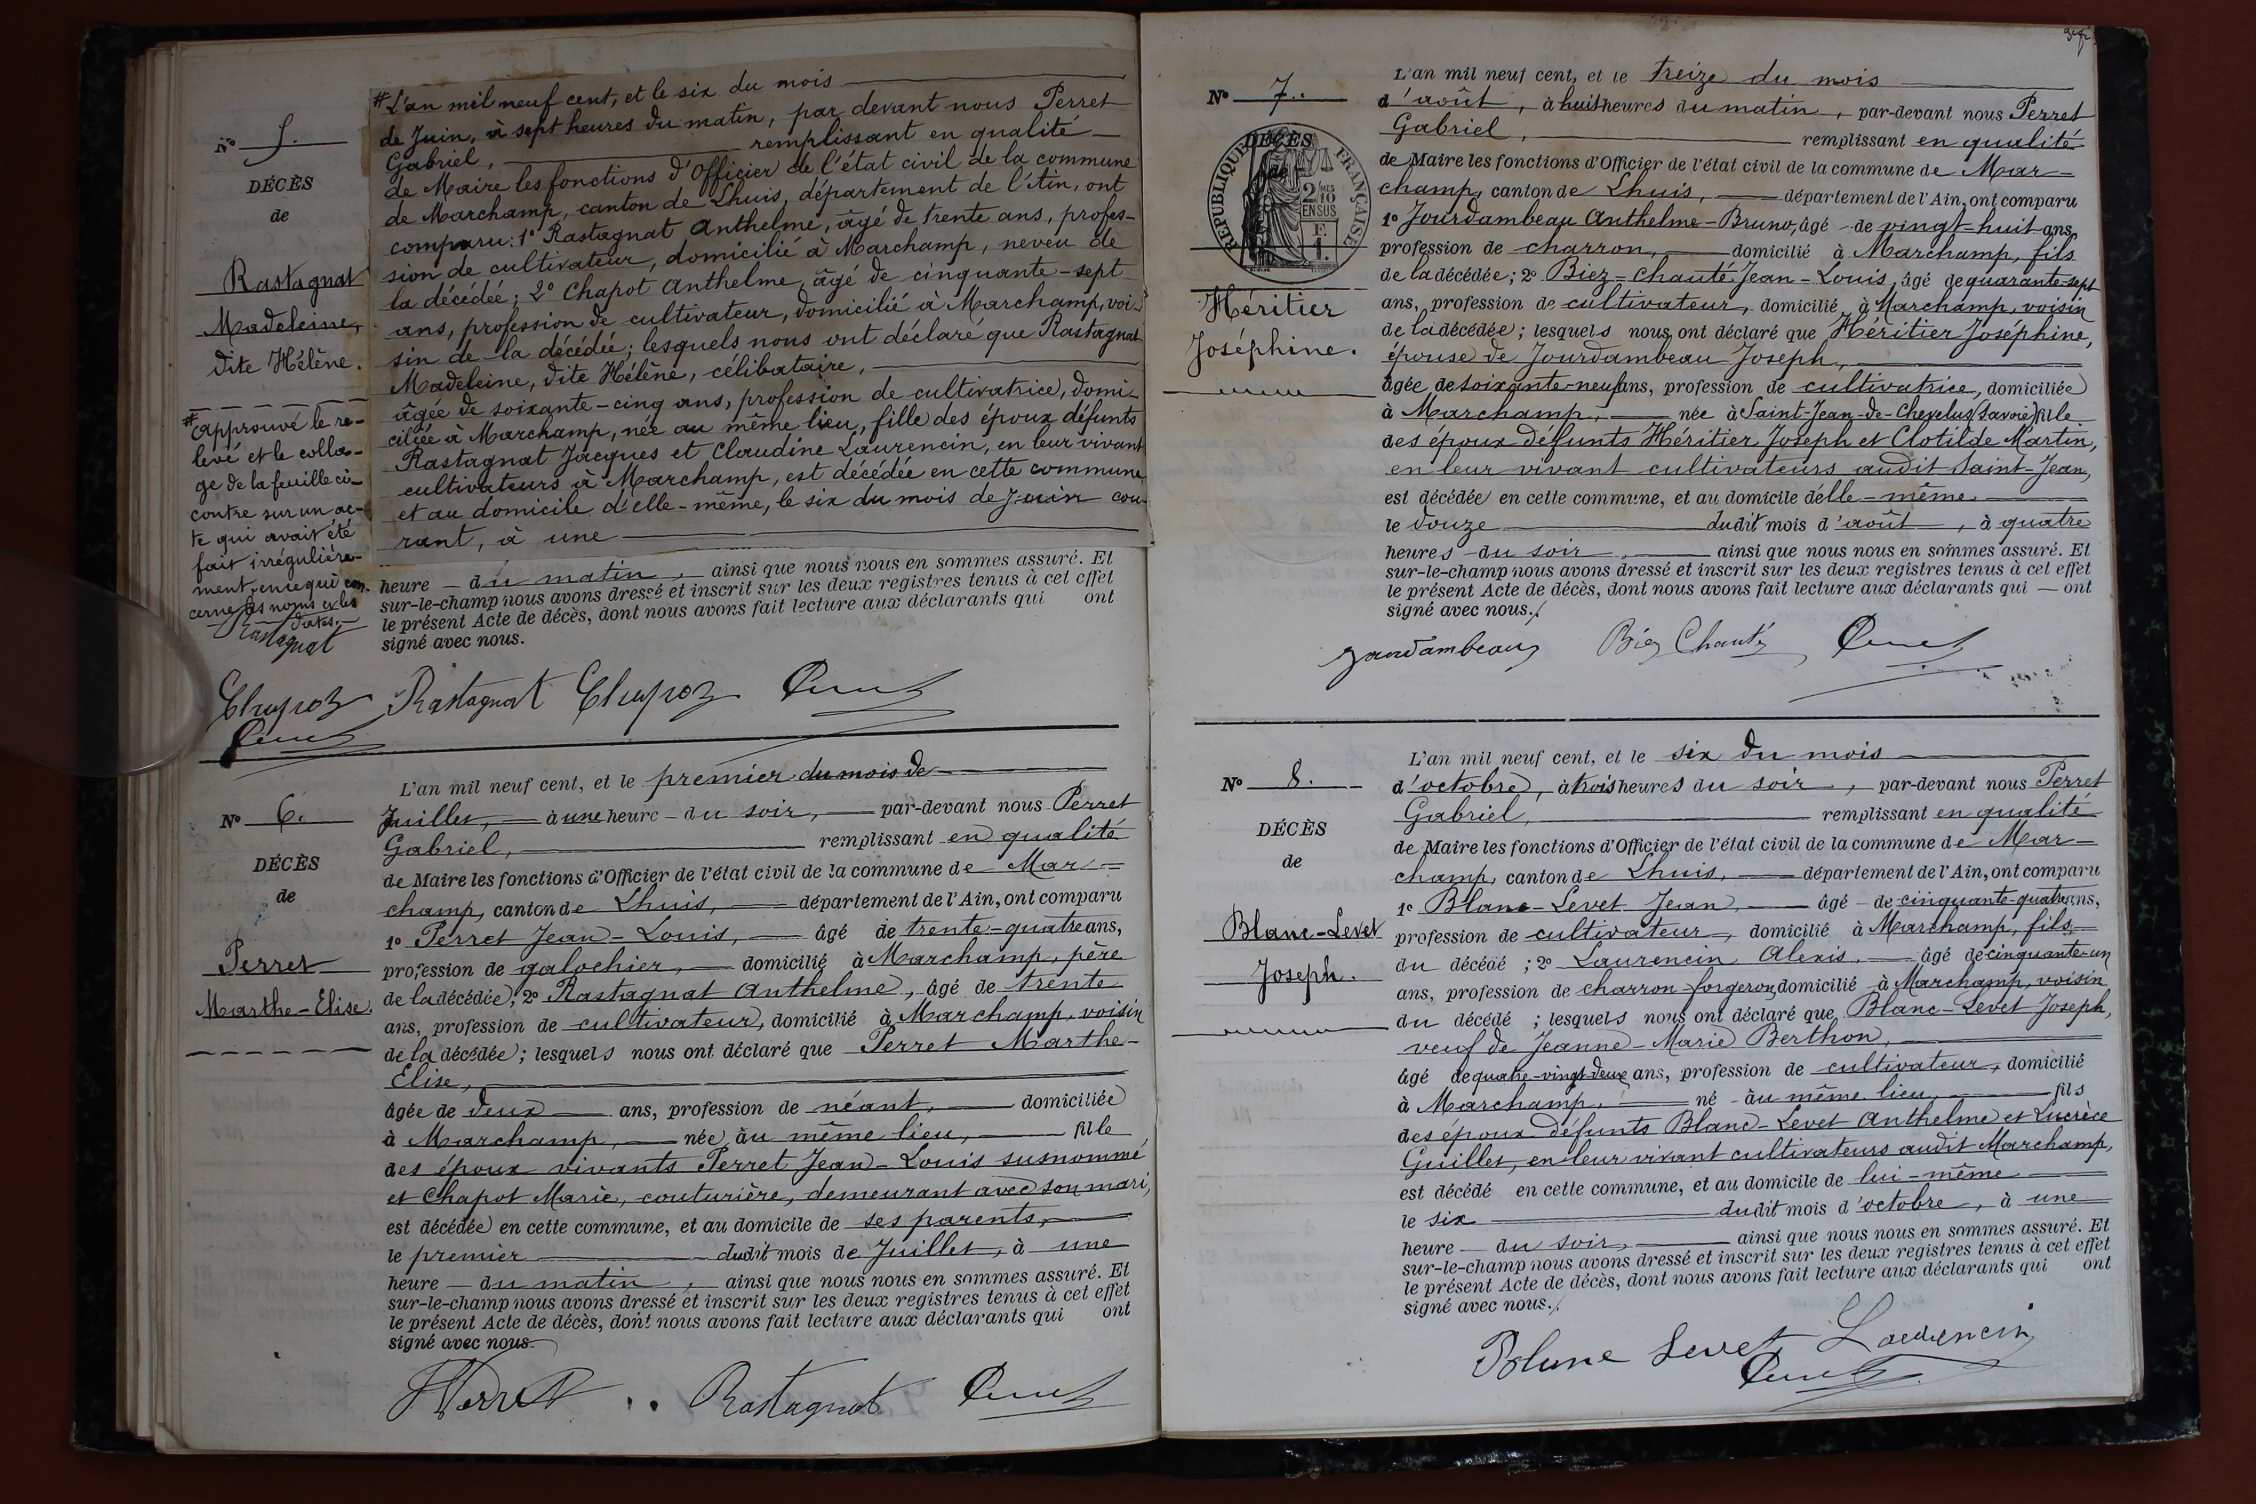 N° 5.
DÉCÈS
de
Rastagnat
Madeleine,
dite Hélène.
# Approuvé le re-
levé et le colla-
ge de la feuille ci-
contre sur un ac-
te qui avait été
fait irréguliére-
ment, en ce qui con-
cerne les noms et les
dates.
Rastagnat
Chapoz
Perret
# L'an mil neuf cent, et le six du mois
de Juin, à sept heures du matin, par devant nous Perret
Gabriel, remplissant en qualité
de Maire les fonctions d'Officier de l'état civil de la commune
de Marchamp, canton de Lhuis, département de l'Ain, ont
comparu: 1° Rastagnat Anthelme, âgé de trente ans, profes-
sion de cultivateur, domicilié à Marchamp, neveu de
la décédée; 2° Chapot Anthelme, âgé de cinquante-sept
ans, profession de cultivateur, domicilié à Marchamp, voi-
sin de la décédée; lesquels nous ont déclaré que Rastagnat
Madeleine, dite Hélène, célibataire,
âgée de soixante-cinq ans, profession de cultivatrice, domi-
ciliée à Marchamp, née au même lieu, fille des époux défunts
Rastagnat Jacques et Claudine Laurencin, en leur vivant
cultivateurs à Marchamp, est décédée en cette commune
et au domicile d'elle-même, le six du mois de Juin cou-
rant, à une
heure du matin, ainsi que nous nous en sommes assuré. Et
sur-le-champ nous avons dressé et inscrit sur les deux registres tenus à cet effet
le présent Acte de décès, dont nous avons fait lecture aux déclarants qui ont
signé avec nous.
Rastagnat Chapoz Perret
N° 6.
DÉCÈS
de
Perret
Marthe-Elise.
L'an mil neuf cent, et le premier du mois de
Juillet, à une heure du soir, par-devant nous Perret
Gabriel, remplissant en qualité
de Maire les fonctions d'Officier de l'état civil de la commune de Mar-
champ, canton de Lhuis, département de l'Ain, ont comparu
1° Perret Jean-Louis, âgé de trente-quatre ans,
profession de galochier, domicilié à Marchamp, père
de la décédée; 2° Rastagnat Anthelme, âgé de trente
ans, profession de cultivateur, domicilié à Marchamp, voisin
de la décédée; lesquels nous ont déclaré que Perret Marthe-
Elise,
âgée de deux ans, profession de néant, domiciliée
à Marchamp, née au même lieu, fille
des époux vivants Perret Jean-Louis susnommé
et Chapot Marie, couturière, demeurant avec son mari,
est décédée en cette commune, et au domicile de ses parents,
le premier dudit mois de Juillet, à une
heure du matin, ainsi que nous nous en sommes assuré. Et
sur-le-champ nous avons dressé et inscrit sur les deux registres tenus à cet effet
le présent Acte de décès, dont nous avons fait lecture aux déclarants qui ont
signé avec nous.
Perret Rastagnat Perret
N° 7.
DÉCÈS
de
RÉPUBLIQUE FRANÇAISE
2/10 EN SUS
F. 1.
Héritier
Joséphine.
L'an mil neuf cent, et le treize du mois
d'août, à huit heures du matin, par-devant nous Perret
Gabriel, remplissant en qualité
de Maire les fonctions d'Officier de l'état civil de la commune de Mar-
champ, canton de Lhuis, département de l'Ain, ont comparu
1° Jourdambeau Anthelme-Bruno, âgé de vingt-huit ans,
profession de charron, domicilié à Marchamp, fils
de la décédée; 2° Biez-Chauté Jean-Louis, âgé de quarante-sept
ans, profession de cultivateur, domicilié à Marchamp, voisin
de la décédée; lesquels nous ont déclaré que Héritier Joséphine,
épouse de Jourdambeau Joseph,
âgée de soixante-neuf ans, profession de cultivatrice, domiciliée
à Marchamp, née à Saint-Jean-de-Chevelus (Savoie) fille
des époux défunts Héritier Joseph et Clotilde Martin,
en leur vivant cultivateurs audit Saint-Jean,
est décédée en cette commune, et au domicile d'elle-même
le douze dudit mois d'août, à quatre
heures du soir, ainsi que nous nous en sommes assuré. Et
sur-le-champ nous avons dressé et inscrit sur les deux registres tenus à cet effet
le présent Acte de décès, dont nous avons fait lecture aux déclarants qui ont
signé avec nous.
Jourdambeau Biez Chauté Perret
N° 8.
DÉCÈS
de
Blanc-Levet
Joseph.
L'an mil neuf cent, et le six du mois
d'octobre, à trois heures du soir, par-devant nous Perret
Gabriel, remplissant en qualité
de Maire les fonctions d'Officier de l'état civil de la commune de Mar-
champ, canton de Lhuis, département de l'Ain, ont comparu
1° Blanc-Levet Jean, âgé de cinquante-quatre ans,
profession de cultivateur, domicilié à Marchamp, fils
du décédé; 2° Laurencin Alexis, âgé de cinquante-un
ans, profession de charron-forgeron, domicilié à Marchamp, voisin
du décédé; lesquels nous ont déclaré que Blanc-Levet Joseph,
veuf de Jeanne-Marie Berthon,
âgé de quatre-vingt-deux ans, profession de cultivateur, domicilié
à Marchamp, né au même lieu, fils
des époux défunts Blanc-Levet Anthelme et Lucrèce
Guillet, en leur vivant cultivateurs audit Marchamp,
est décédé en cette commune, et au domicile de lui-même
le six dudit mois d'octobre, à une
heure du soir, ainsi que nous nous en sommes assuré. Et
sur-le-champ nous avons dressé et inscrit sur les deux registres tenus à cet effet
le présent Acte de décès, dont nous avons fait lecture aux déclarants qui ont
signé avec nous.
Blanc Levet Laurencin
Perret